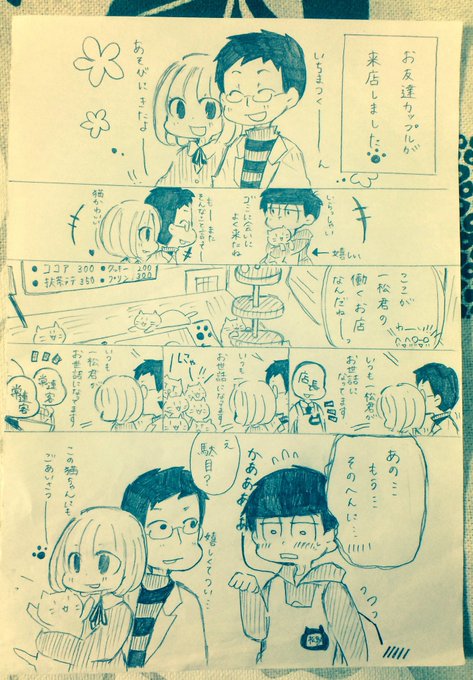 お友達カップルが
来店しました
いちまつくーーーん
あそびにきたよーー
いらっしゃい
ゴミに会いに
よく来たね
嬉しい
もーまた
そんなこと言ってー
猫かわいい
ここが
一松君の
働くお店
なんだねーっ
わーい
ココア 300
クッキー 200
抹茶ラテ 350
プリン 300
いつも一松君が
お世話になってます
店長
いつも
お世話になります
にゃー
いつも
一松君が
お世話になります
常連客
常連客
あの…
もう…
そのへんに…
かああああ
え
駄目?
嬉しくてつい…
この猫ちゃんにも
ごあいさつー